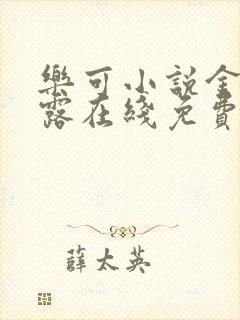 樂可小说金
露在綫免費
薛太英